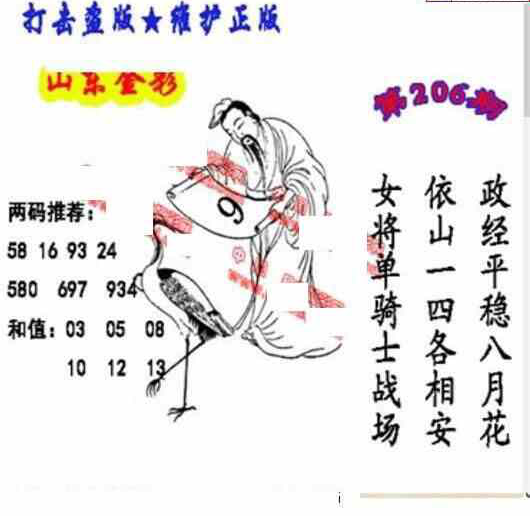 打击盗版★维护正版
山东金彩
第206期
两码推荐：
58 16 93 24
580 697 934
和值：03 05 08
10 12 13
9
政经平稳八月花
依山一四各相安
女将单骑士战场